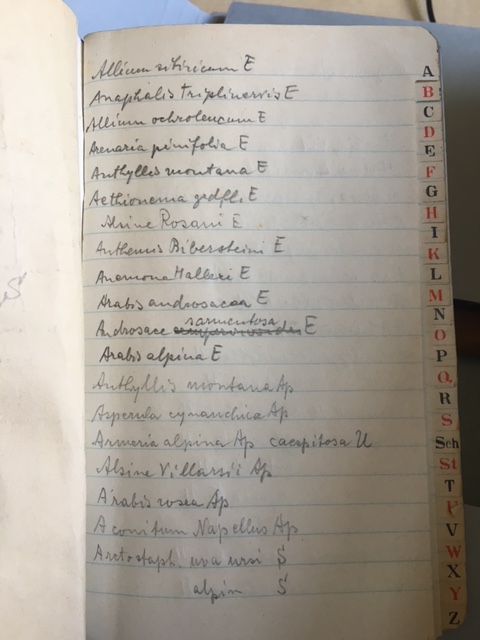 Allium sibiricum E
Anaphalis triplinervis E
Allium ochroleucum E
Arenaria pinifolia E
Anthyllis montana E
Aethionema grdfl. E
Alsine Rosani E
Anthemis Bibersteini E
Anemona Halleri E
Arabis androsacea E
sarmentosa
Androsace E
Arabis alpina E
Anthyllis montana Ap
Asperula cynanchica Ap
Armeria alpina Ap caespitosa U
Alsine Villarsii Ap
Arabis rosea Ap
Aconitum Napellus Ap
Arctostaph. uva ursi Š
alpin Š
A
B
C
D
E
F
G
H
I
K
L
M
N
O
P
Q
R
S
Sch
St
T
V
W
X
Y
Z